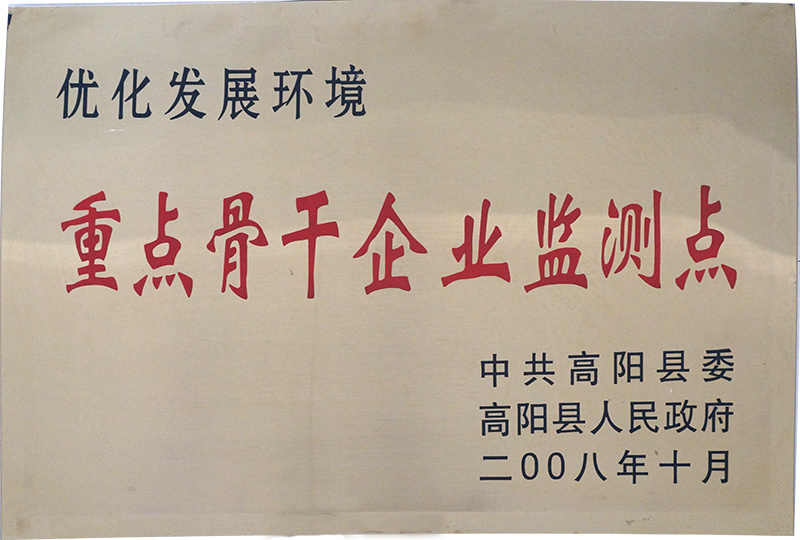 优化发展环境
重点骨干企业监测点
中共高阳县委
高阳县人民政府
二00八年十月